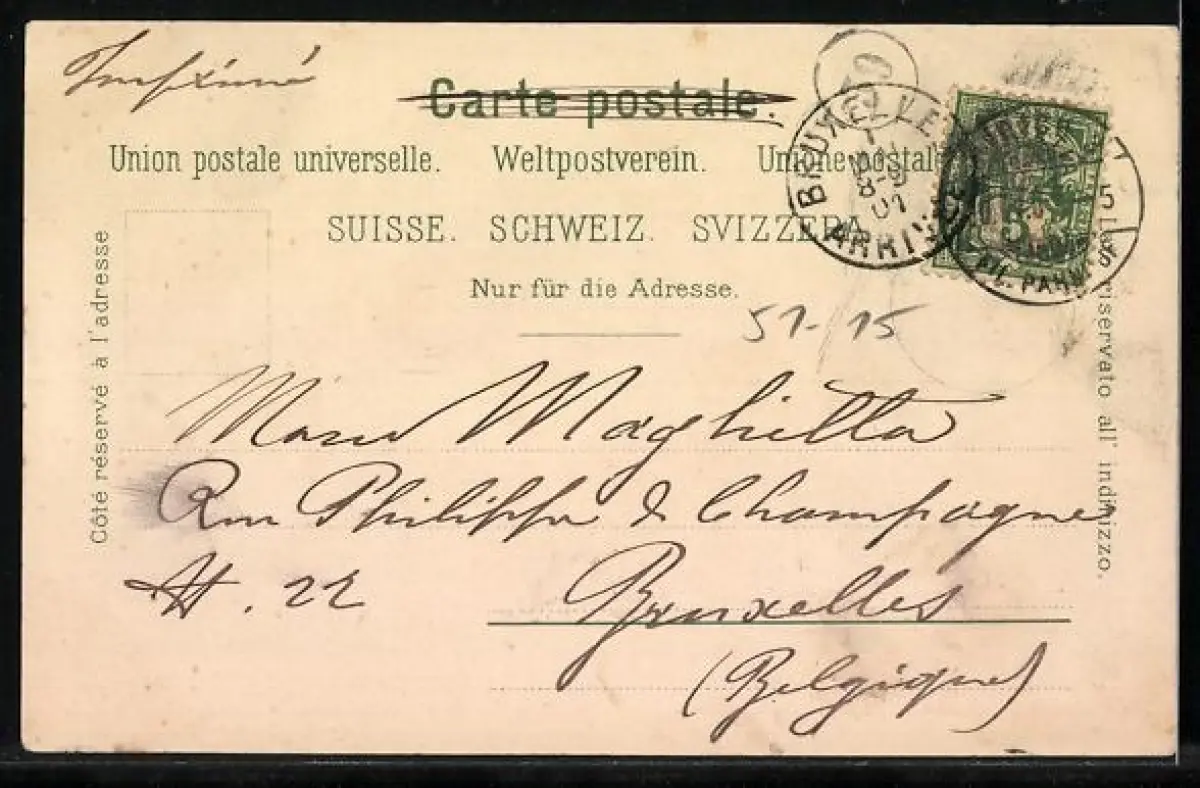 Imprimé
Carte postale.
Union postale universelle. Weltpostverein. Unione postale
SUISSE. SCHWEIZ. SVIZZERA.
Nur für die Adresse.
Côté réservé à l'adresse
riservato all' indirizzo.
BRUXELLES
ARRIVÉE
5
FIL. BAHNHOF
51-15
Maghetta
Rue Philippe de Champagne
N. 22
Bruxelles
(Belgique)